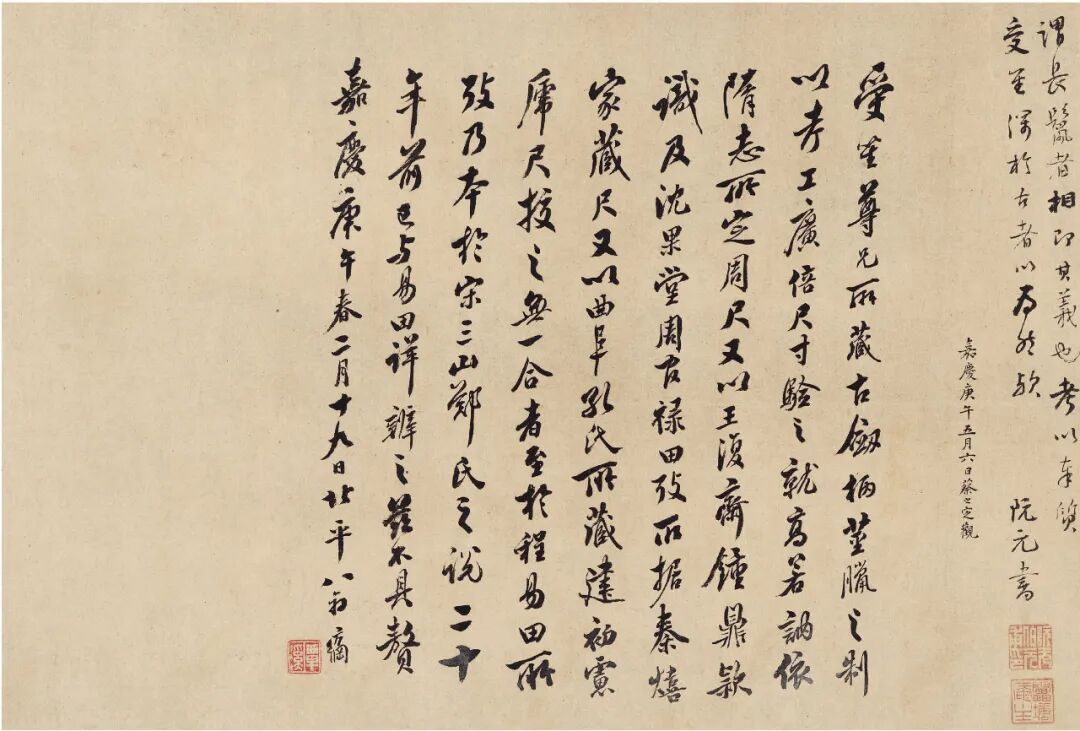 谓长鬣者相即其义也考以奉质
受笙深于古者以为然欤　阮元书
嘉慶庚午五月六日蔡之定觀
受笙尊兄所藏古劒柄莖臘之制
以考工廣倍尺寸驗之就高若訥依
隋志所定周尺又以王復齋鐘鼎款
識及沈果堂周官禄田攷所据秦熺
家藏尺又以曲阜孔氏所藏建初慮
虒尺挍之無一合者至於程易田所
攷乃本於宋三山鄭氏之説二十
年前已与易田詳辨之兹不具贅
嘉慶庚午春二月十九日北平翁方綱